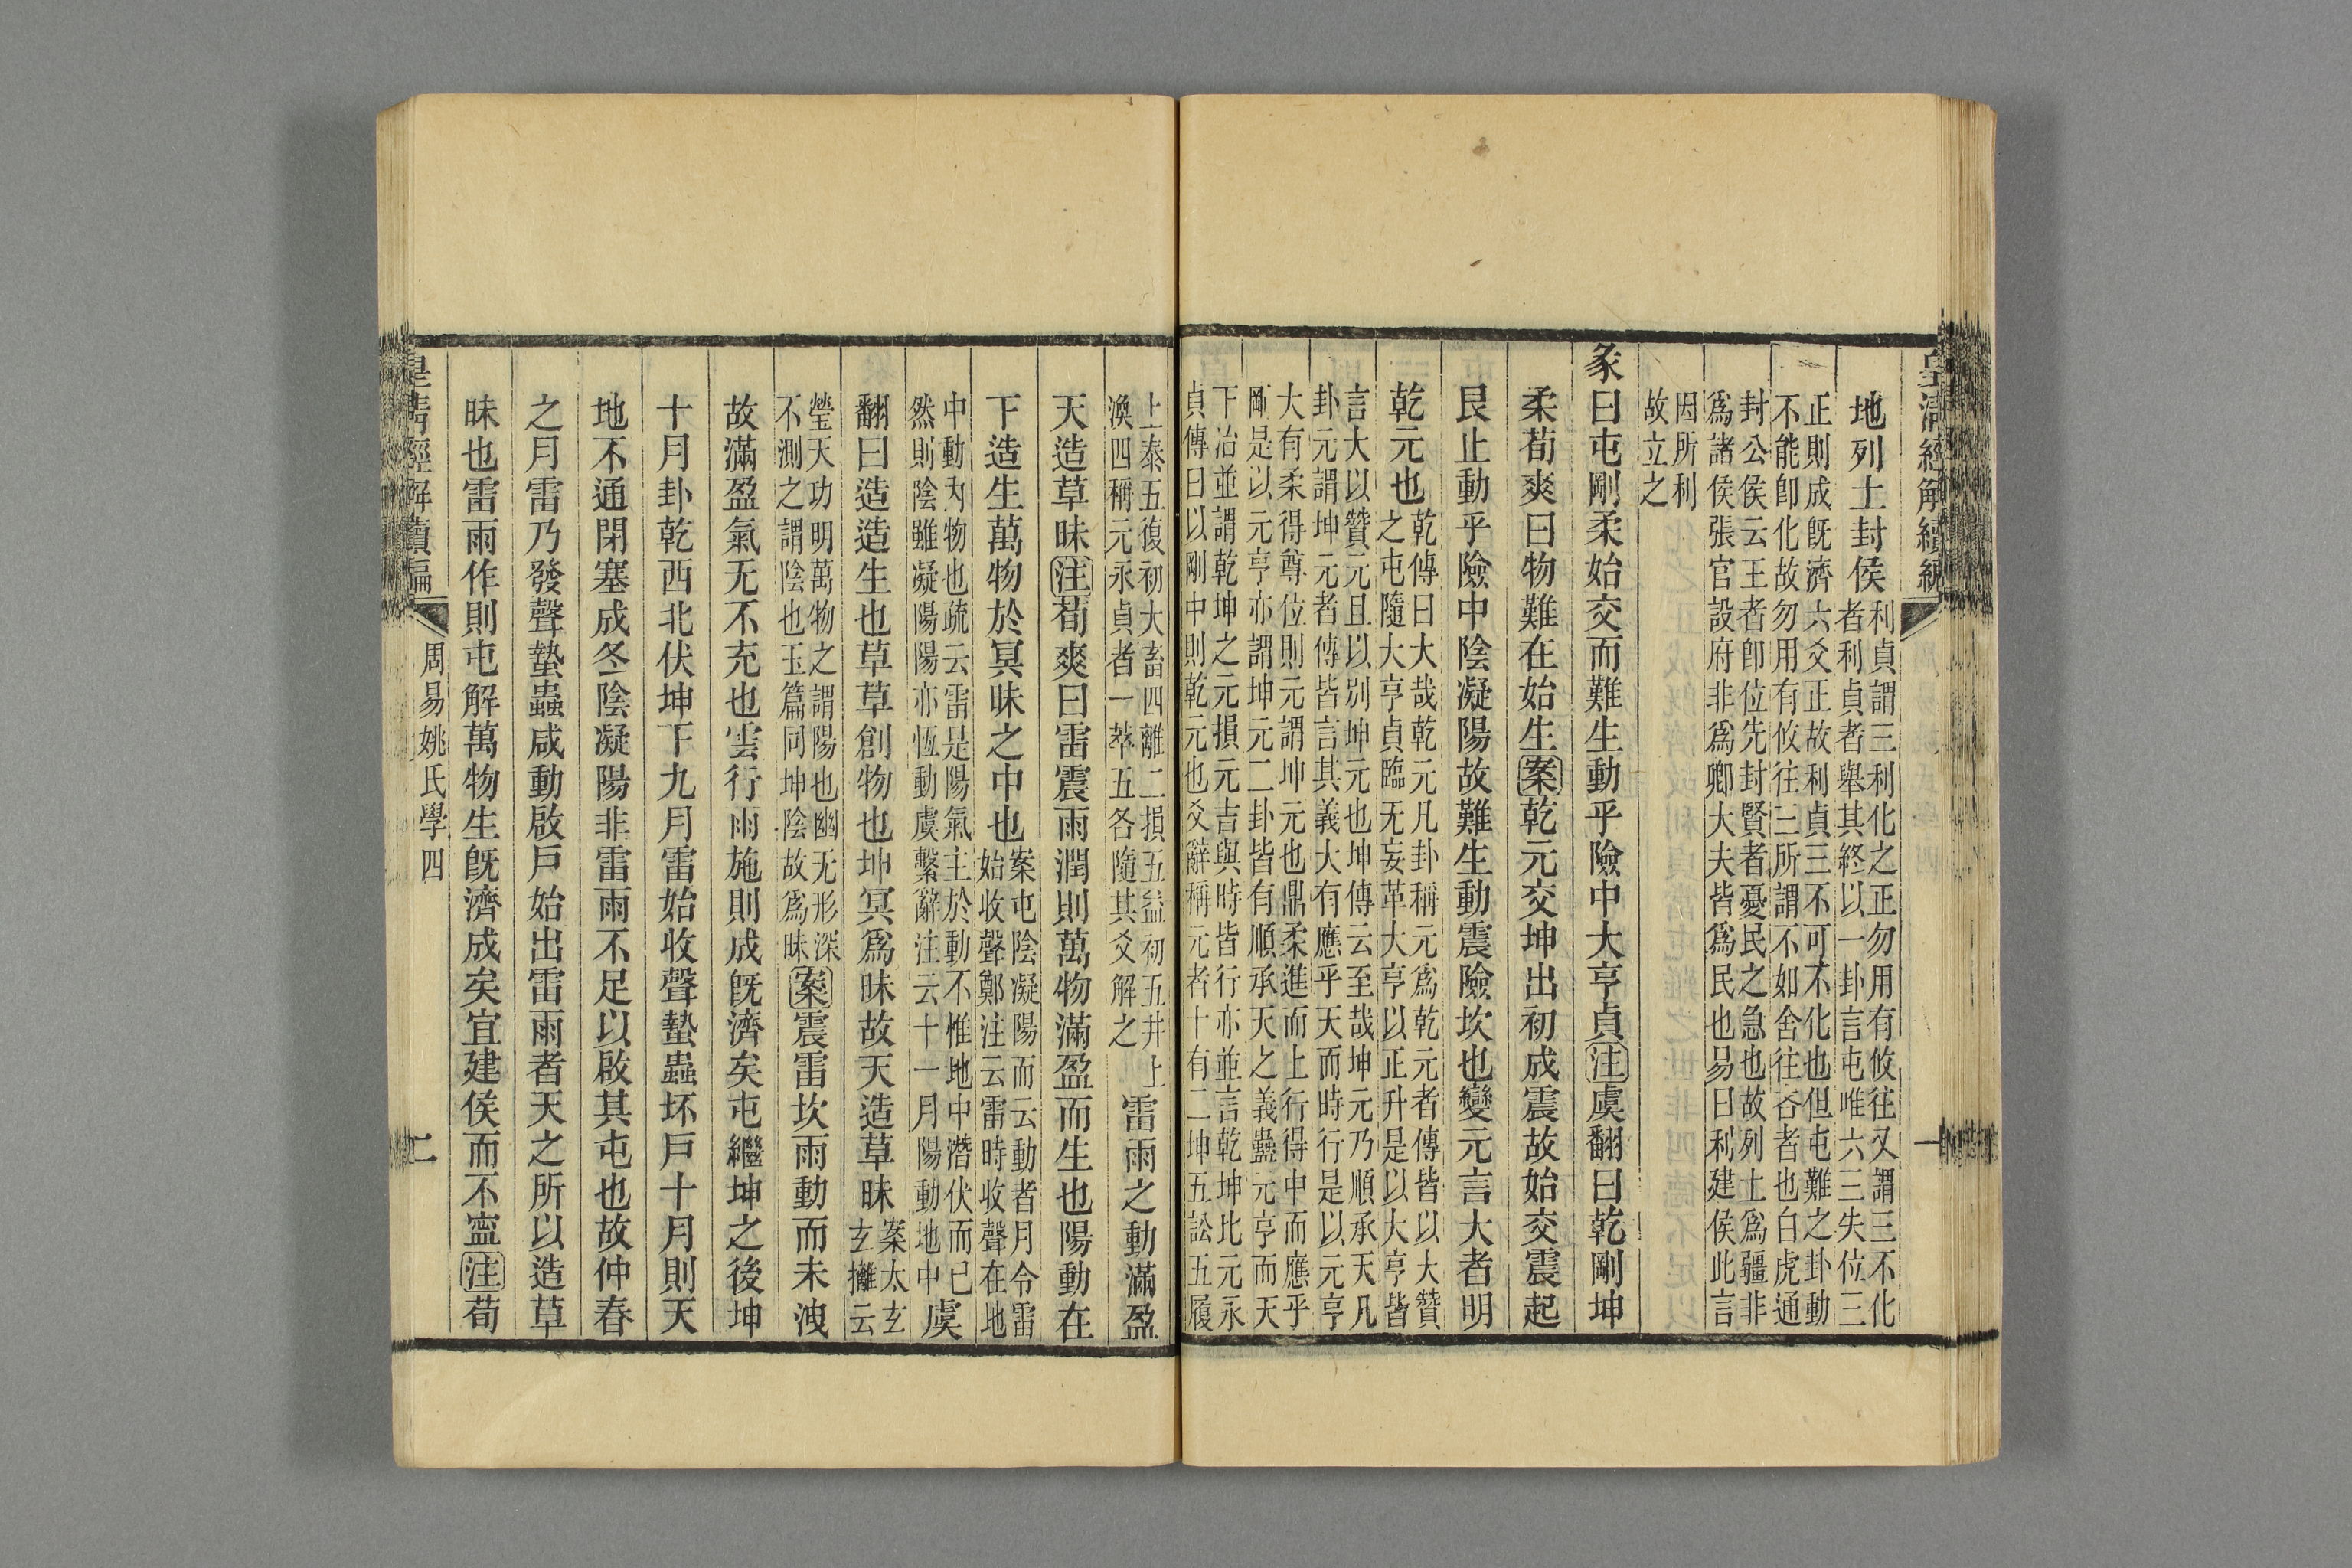 皇清經解續編
一
地列土封侯利貞謂三利化之正勿用有攸往又謂三不化
者利貞者舉其終以一卦言屯唯六三失位三
正則成旣濟六爻正故利貞三不可不化也但屯難之卦動
不能卽化故勿用有攸往三所謂不如舍往吝者也白虎通
封公侯云王者卽位先封賢者憂民之急也故列土爲疆非
爲諸侯張官設府非爲卿大夫皆爲民也易曰利建侯此言
因所利
故立之
彖曰屯剛柔始交而難生動乎險中大亨貞注虞翻曰乾剛坤
柔荀爽曰物難在始生案乾元交坤出初成震故始交震起
艮止動乎險中陰凝陽故難生動震險坎也變元言大者明
乾元也乾傳曰大哉乾元凡卦稱元爲乾元者傳皆以大贊
之屯隨大亨貞臨无妄革大亨以正升是以大亨皆
言大以贊元且以別坤元也坤傳云至哉坤元乃順承天凡
卦元謂坤元者傳皆言其義大有應乎天而時行是以元亨
大有柔得尊位則元謂坤元也鼎柔進而上行得中而應乎
剛是以元亨亦謂坤元二卦皆有順承天之義蠱元亨而天
下治並謂乾坤之元損元吉與時皆行亦並言乾坤比元永
貞傳曰以剛中則乾元也爻辭稱元者十有二坤五訟五履
上泰五復初大畜四離二損五益初五井上
渙四稱元永貞者一萃五各隨其爻解之
雷雨之動滿盈
天造草昧注荀爽曰雷震雨潤則萬物滿盈而生也陽動在
下造生萬物於冥昧之中也案屯陰凝陽而云動者月令雷
始收聲鄭注云雷時收聲在地
中動內物也疏云雷是陽氣主於動不惟地中潛伏而已
然則陰雖凝陽陽亦恆動虞繫辭注云十一月陽動地中
虞
翻曰造造生也草草創物也坤冥爲昧故天造草昧案太玄
玄攡云
瑩天功明萬物之謂陽也幽无形深
不測之謂陰也玉篇同坤陰故爲昧
案震雷坎雨動而未洩
故滿盈氣无不充也雲行雨施則成旣濟矣屯繼坤之後坤
十月卦乾西北伏坤下九月雷始收聲蟄蟲坏戶十月則天
地不通閉塞成冬陰凝陽非雷雨不足以啟其屯也故仲春
之月雷乃發聲蟄蟲咸動啟戶始出雷雨者天之所以造草
昧也雷雨作則屯解萬物生旣濟成矣宜建侯而不寍注荀
皇清經解續編
周易姚氏學四
二